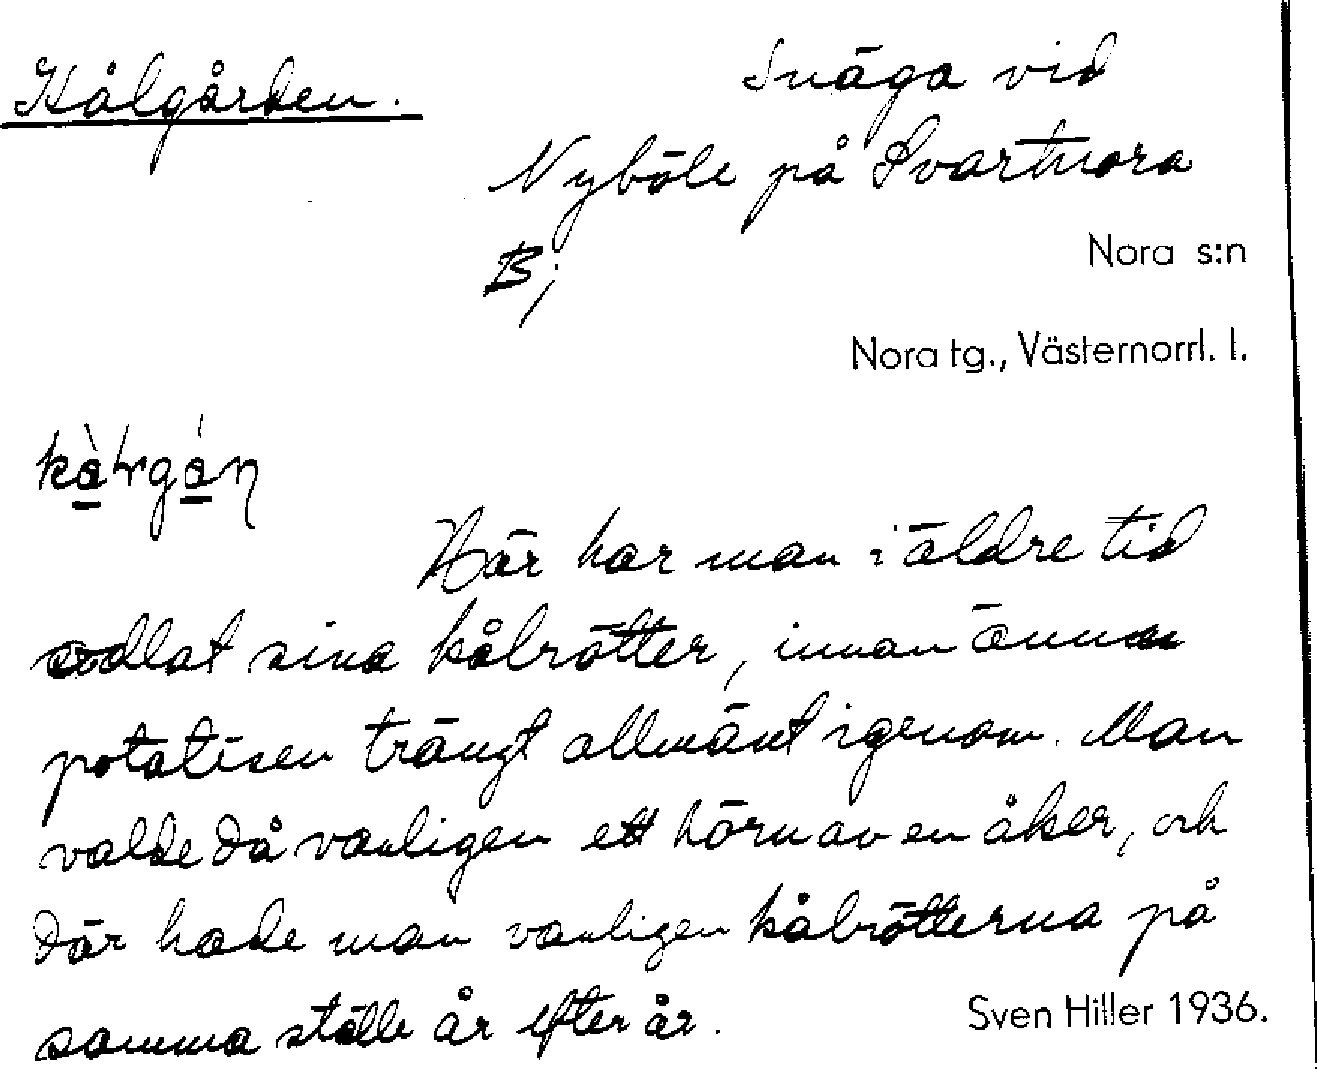 Kålgården.
Snäga vid
Nyböle på Svartnora
B;
Nora s:n
Nora tg., Västernorrl. l.
Här har man i äldre tid
odlat sina kålrötter, innan ännu
potatisen trängt allmänt igenom. Man
valde då vanligen ett hörn av en åker, och
där hade man vanligen kålrötterna på
samma ställe år efter år.
Sven Hiller 1936.